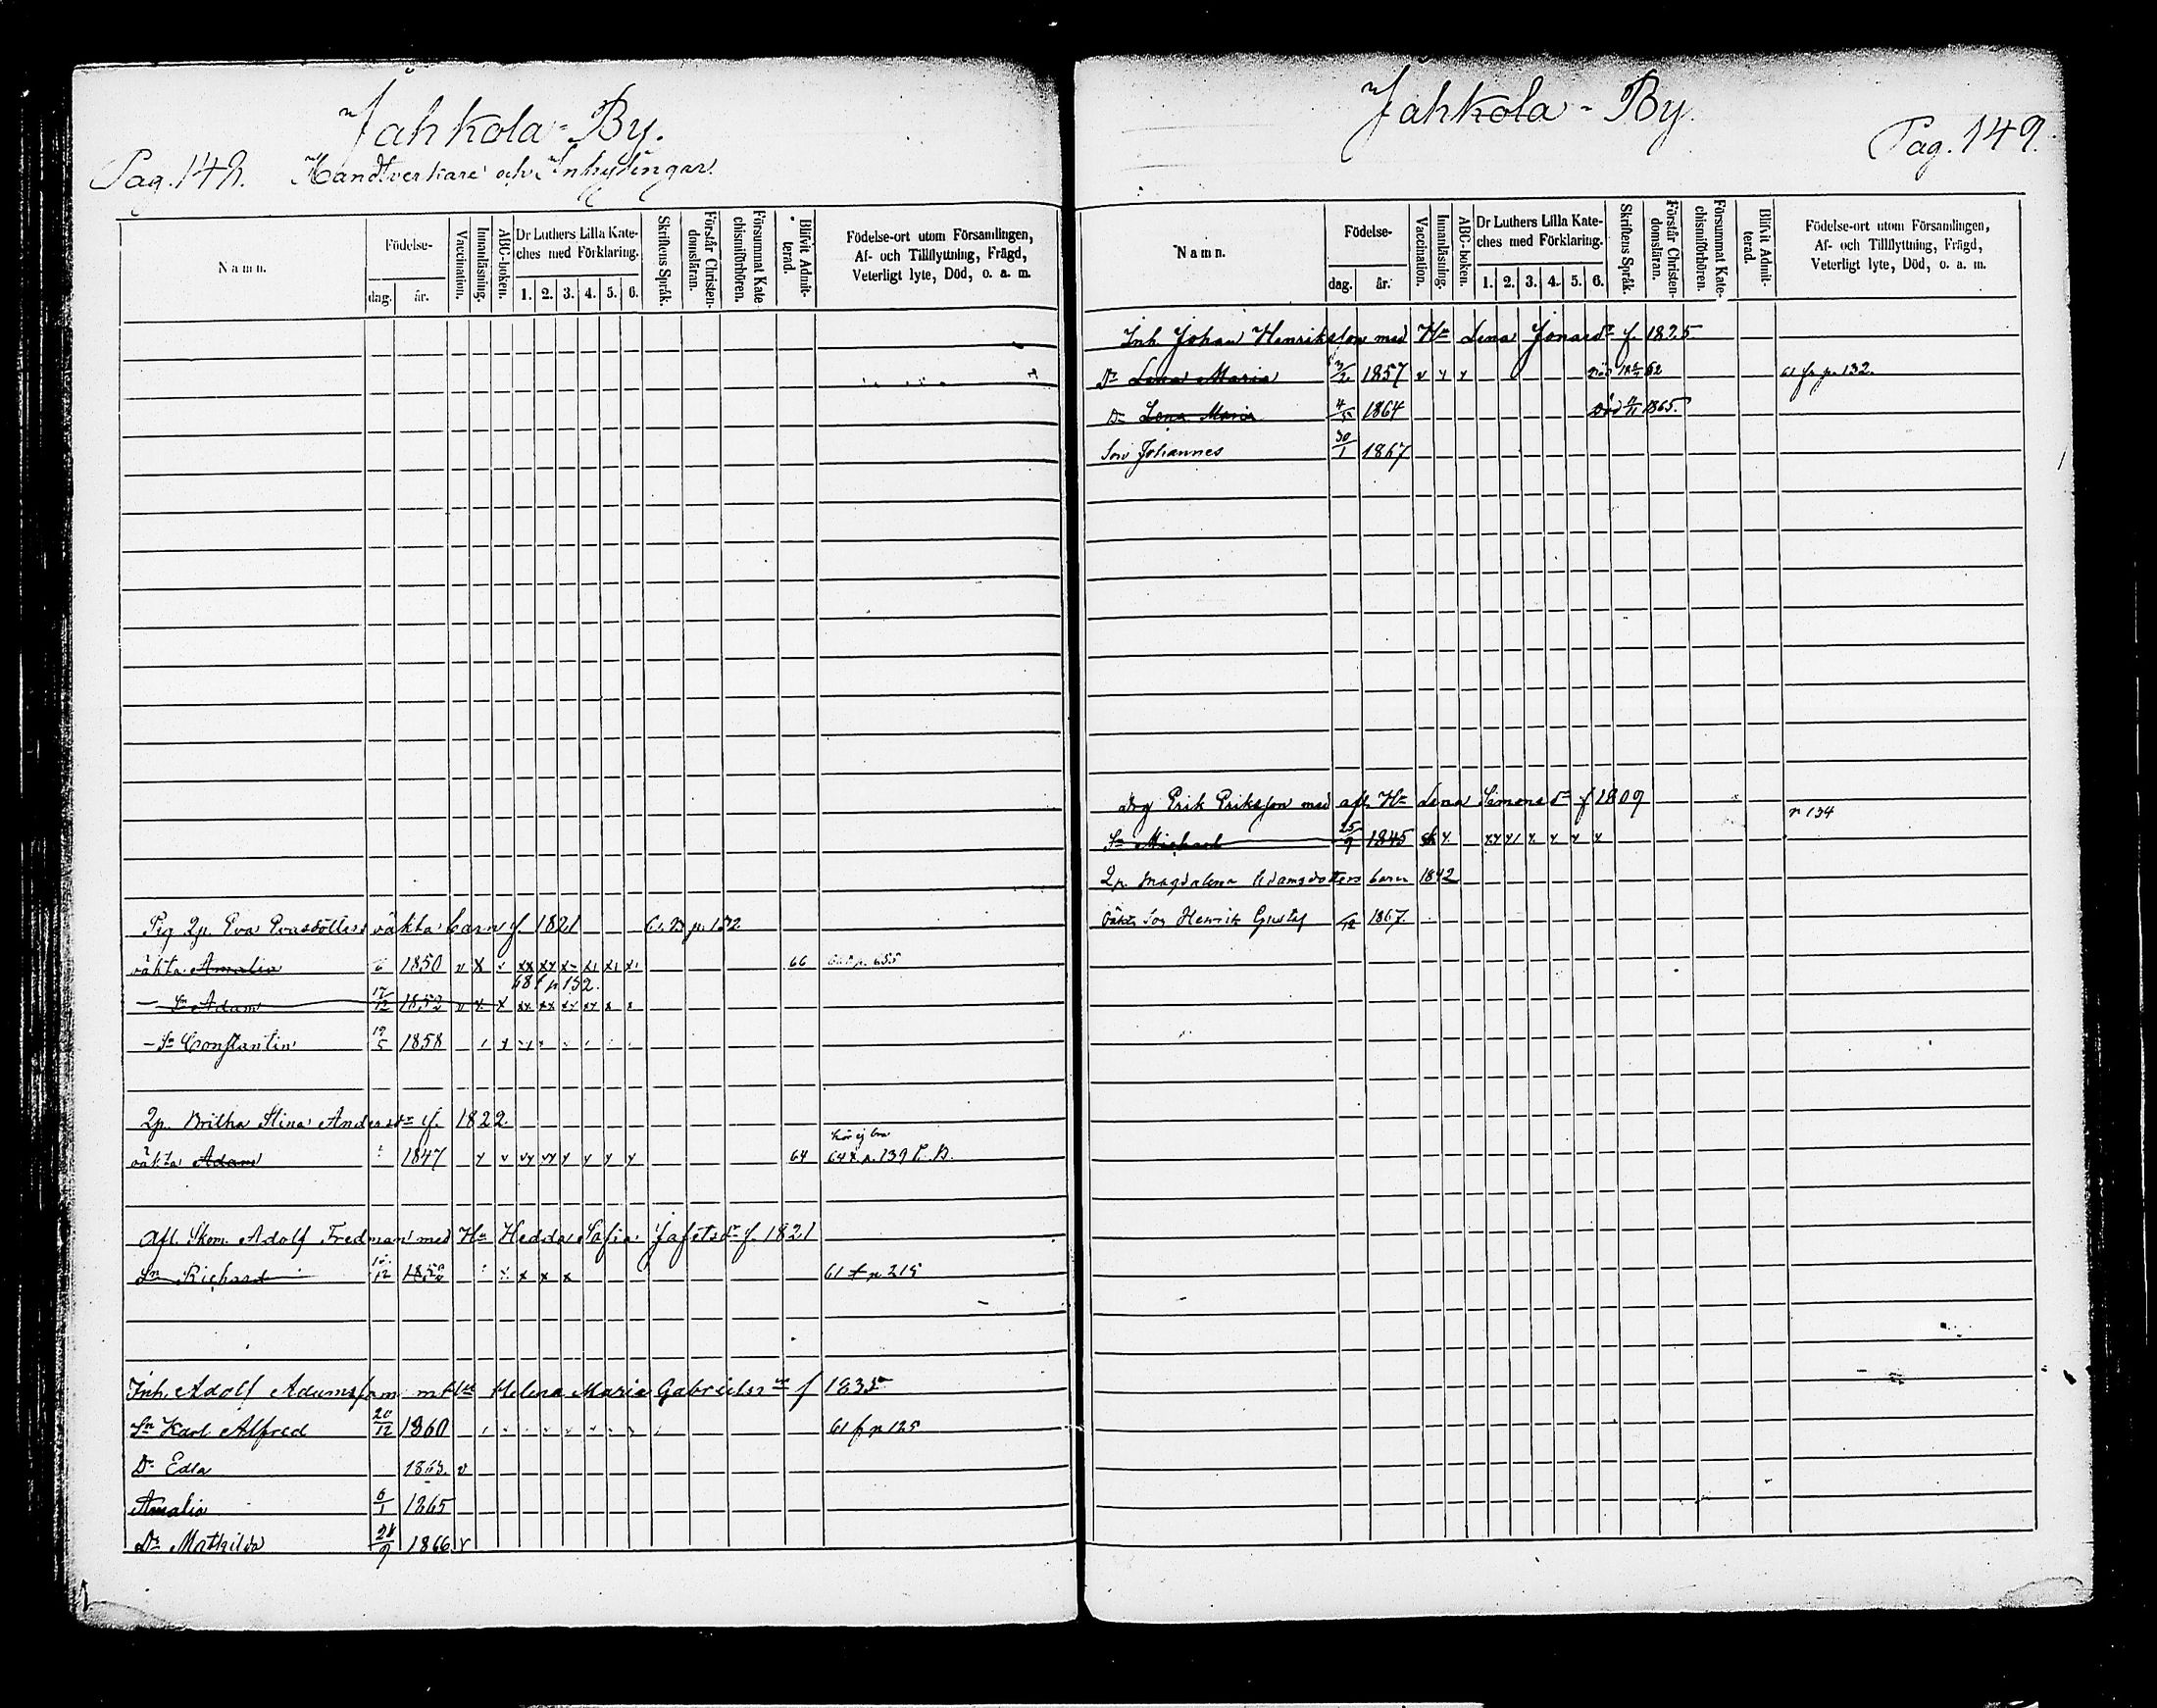 Jahkola-By.
Pag. 148. Handtverkare och Inhysingar
Namn. Födelse- dag. år. Vaccination. Innanläsning. ABC-boken. Dr Luthers Lilla Kate-ches med Förklaring. 1. 2. 3. 4. 5. 6. Skriftens Språk. Förstår Christen-domsläran. Försummat Kate-chismiförhören. Blifvit Admit-terad. Födelse-ort utom Församlingen, Af- och Tillflyttning, Frägd, Veterligt lyte, Död, o. a. m.
Pig Qp. Eva Evasdotters oäkta barn f 1821 C. B p. 132
oäkta Amalia 6 1850 v x v xx xy x- x1 x1 x1 66
68 f p 132.
— Sn Adam 17/12 1852 v x x xx xx xx xy x x
— Sn Constantin 19/5 1858
Qp. Britha Stina Andersdr f. 1822.
hör ej bra
oäkta Adam 1847 y v vy vy y y y y 64 64 t p. 139 C. B.
Afl. Skom. Adolf Fredman med Hu Hedda Sofia Jafetsdr f. 1821
Sn Richard 12 185 x x x 61 t p 215
Inh. Adolf Adamsson m Hu Helena Maria Gabrielsdr f 1835
Sn Karl Alfred 20/12 1860 61 f p 125
Dr Edla 1863. v
Amalia 6/1 1865
Dr Mathilda 28/9 1866 v
Jahkola-By.
Pag. 149.
Namn. Födelse- dag. år. Vaccination. Innanläsning. ABC-boken. Dr Luthers Lilla Kate-ches med Förklaring. 1. 2. 3. 4. 5. 6. Skriftens Språk. Förstår Christen-domsläran. Försummat Kate-chismiförhören. Blifvit Admit-terad. Födelse-ort utom Församlingen, Af- och Tillflyttning, Frägd, Veterligt lyte, Död, o. a. m.
Inh Johan Henriksson med Hu Lena Jonasdr f. 1825
Dr Lena Maria 1857 v y y död 62 61 fr p. 132.
Dr Lena Maria 4/5 1864 Död 1865.
Son Johannes 30/1 1867
Drg Erik Eriksson med afl. Hu Lena Simonsdr f 1809
Sn Michael 25/9 1845 y. xy y1 x y y y r 134
Qp. Magdalena Adamsdotters barn 1842
Oäkta Son Henrik Gustaf 1867.